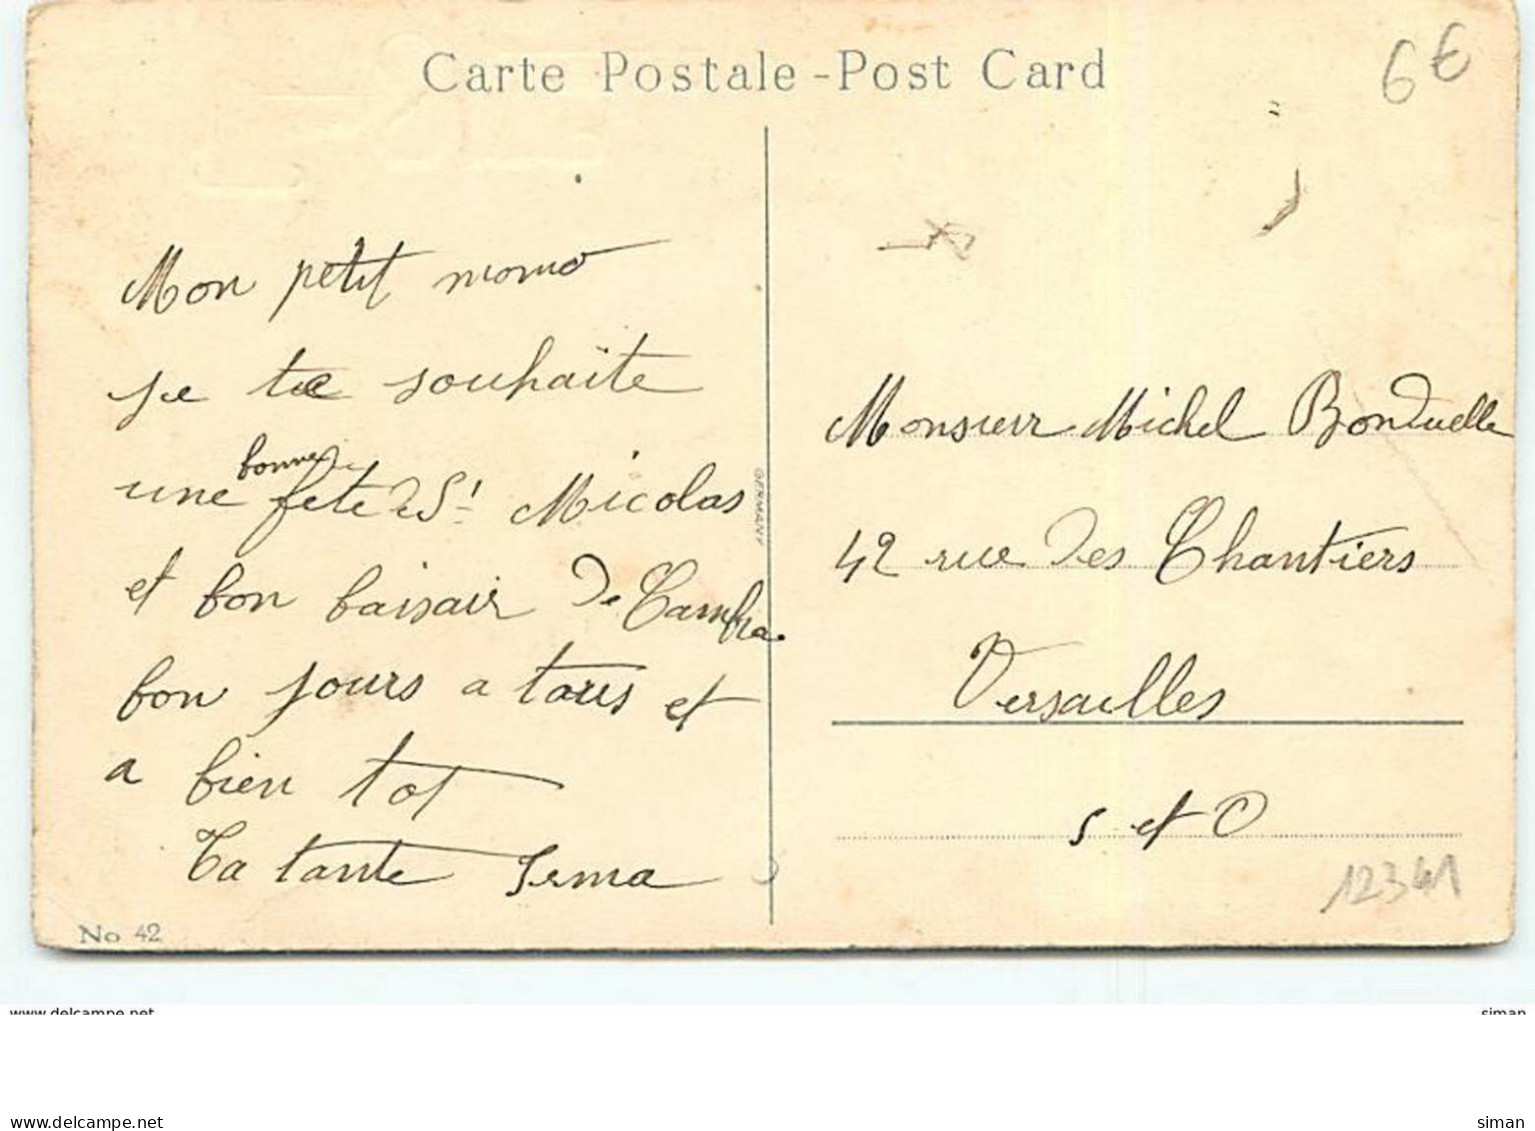 Carte Postale - Post Card
6€
Mon petit momo
je te souhaite
une bonne fete de St Nicolas
et bon baisair de Cambra
bon jours a tous et
a bien tot
Ta tante Irma
No 42
GERMANY
Monsieur Michel Bonduelle
42 rue des Chantiers
Versailles
S et O
12341
www.delcampe.net
siman
www.delcampe.net
siman